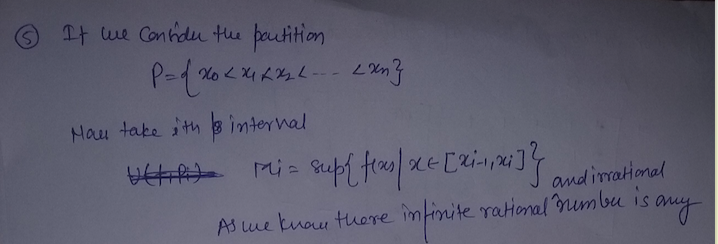 ⑤ If we Consider the partition
P={x0<x1<x2<--- <xn}
Now take ith interval
Mi = sup{f(x)|x∈[xi-1,xi]}
As we know there infinite rational and irrational number is any